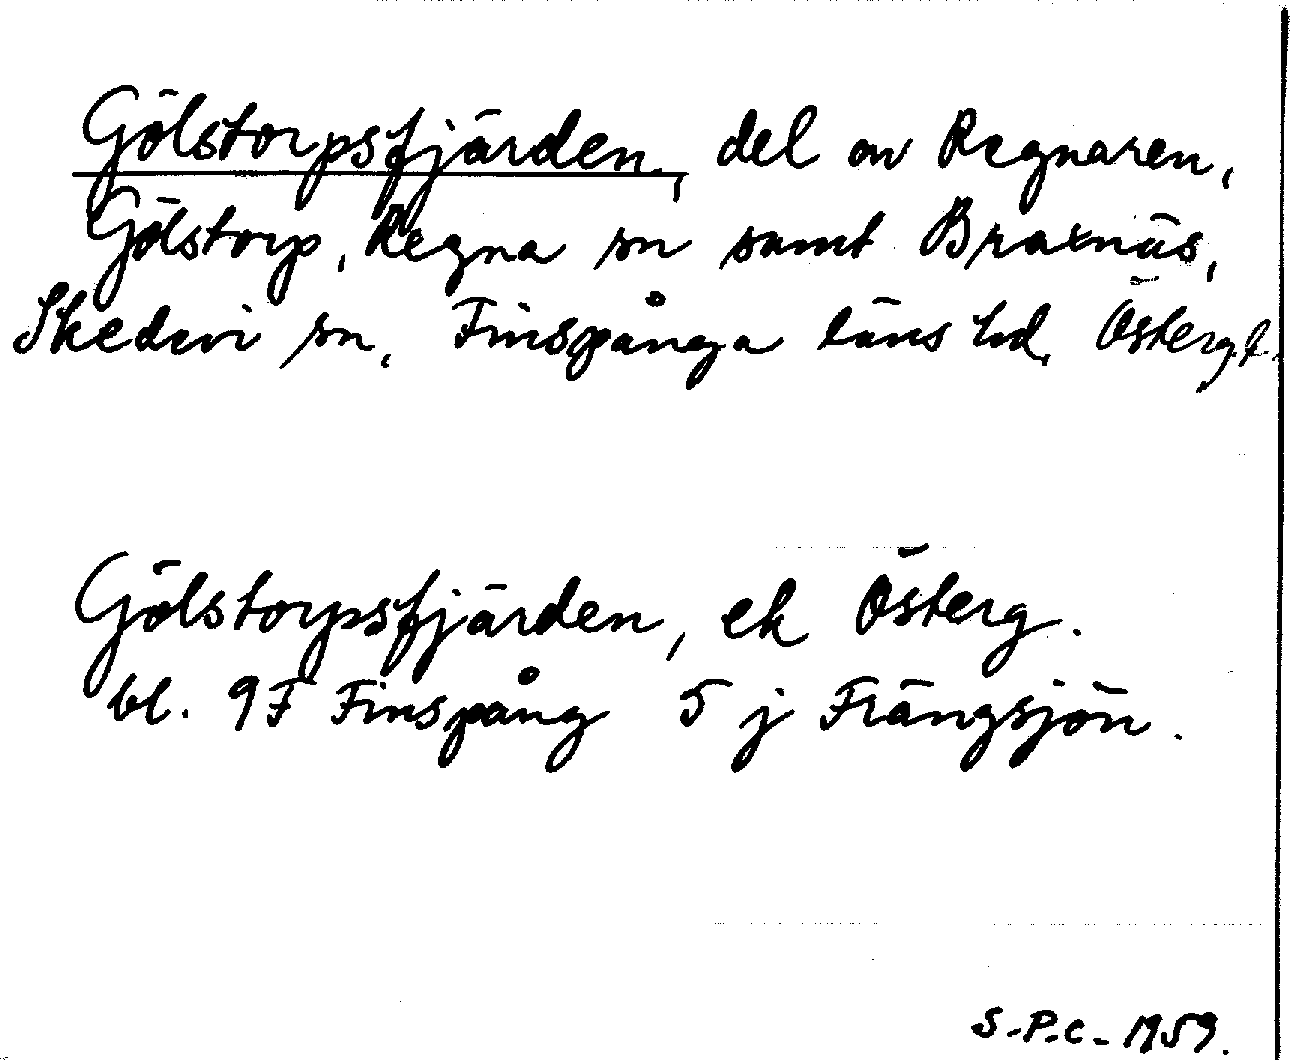 Gölstorpsfjärden, del av Regnaren,
Gölstorp, Regna sn samt Braxnäs,
Skedevi sn, Finspånga läns hd, Östergl.
Gölstorpsfjärden, ek Österg.
bl. 9F Finspång 5 j Frängsjön.
S.P.C. 1959.